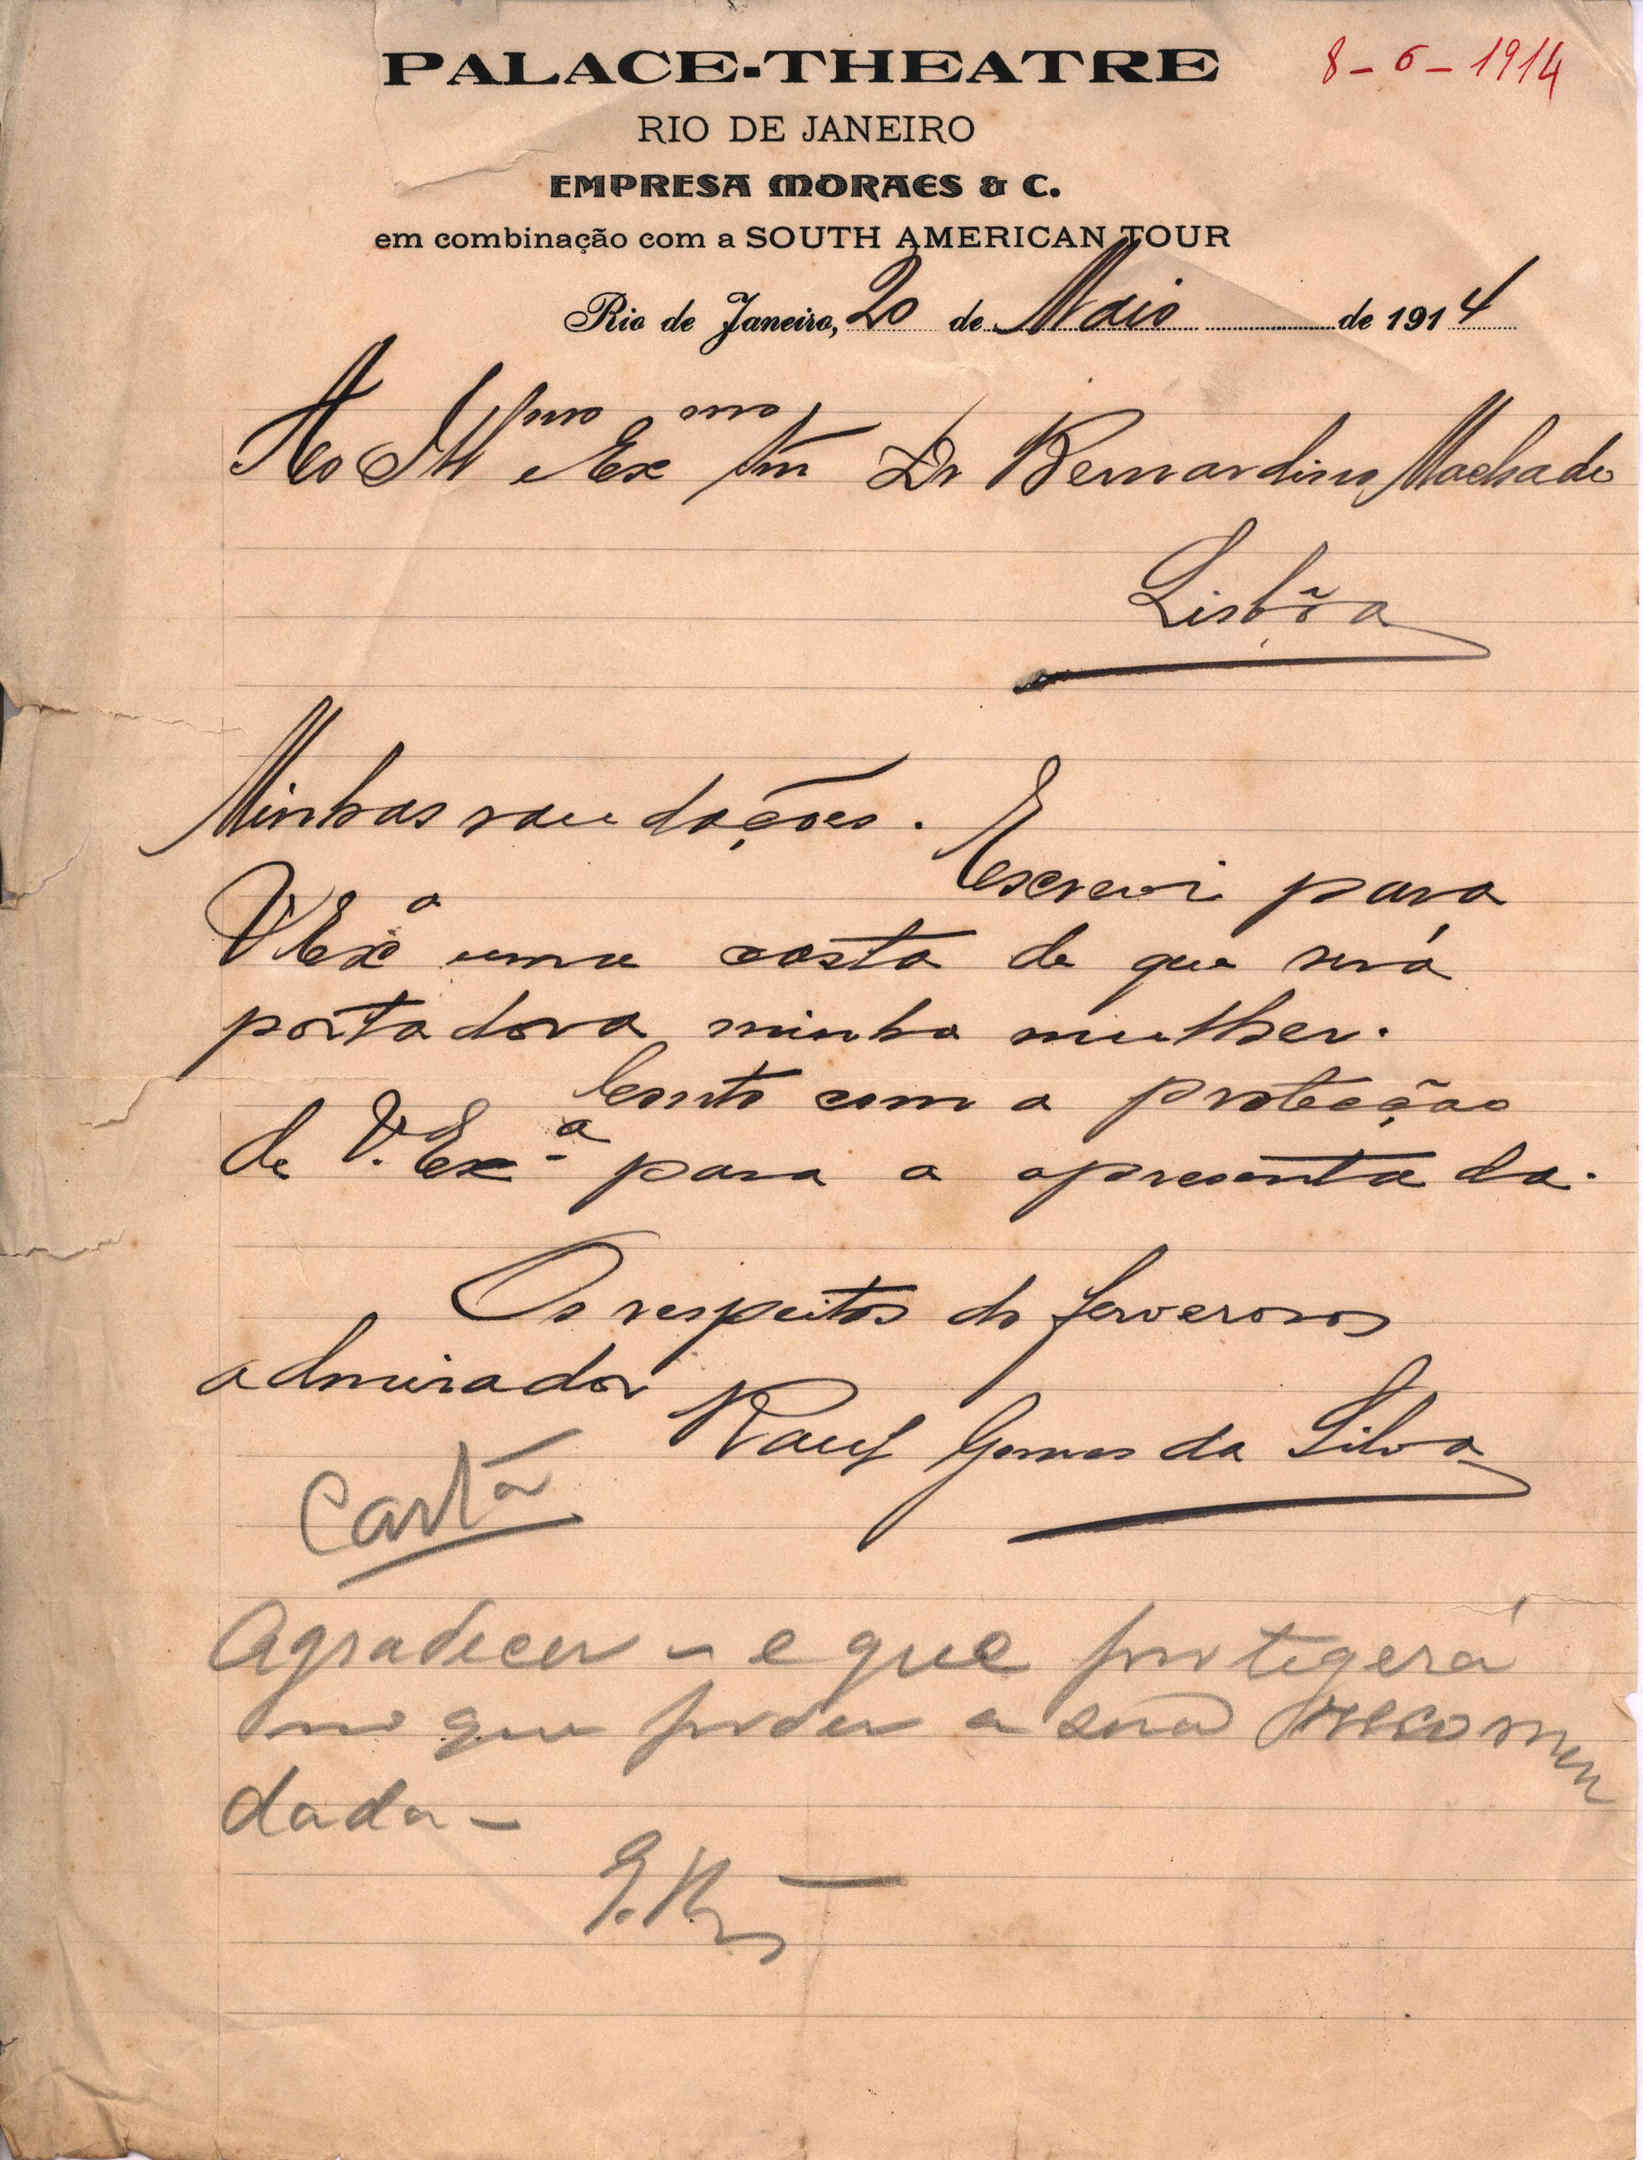 PALACE-THEATRE
8-6-1914
RIO DE JANEIRO
EMPRESA MORAES & C.
em combinação com a SOUTH AMERICAN TOUR
Rio de Janeiro, 20 de Maio de 1914
Ao Illmo e Exmo Snr Dr Bernardino Machado
Lisbôa
Minhas saudações.
Escrevi para
V Exa uma carta de que será
portadora minha mulher.
Conto com a protecção
de V. Exa para a apresentada.
Os respeitos do fervoroso
admirador
Raul Gomes da Silva
Carta
Agradecer – e que protegerá
no que poder a sua recomen
dada –